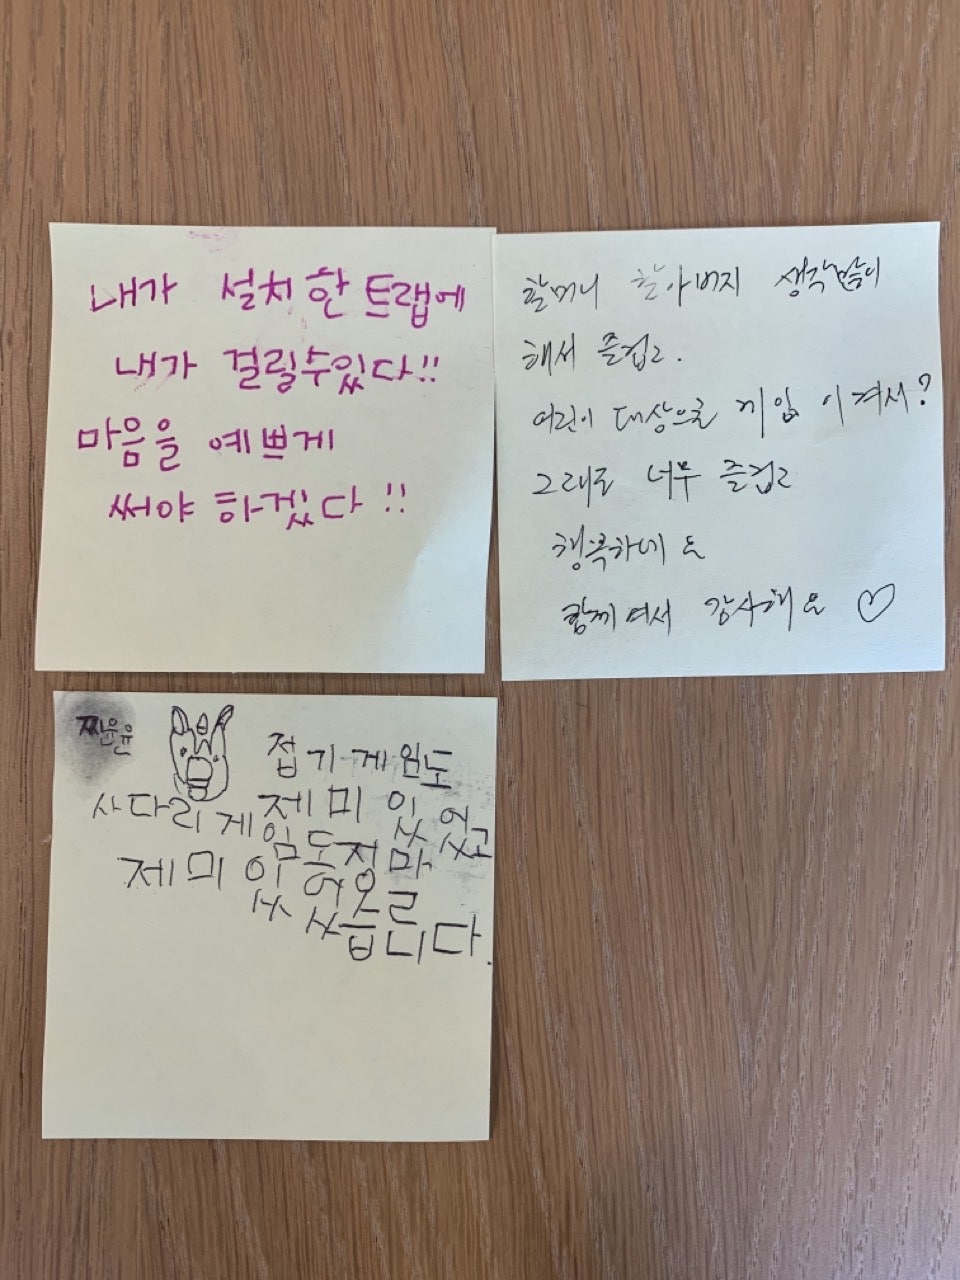 내가 설치한 트랩에
내가 걸릴수있다!!
마음을 예쁘게
써야 하겠다!!
할머니 할아버지 생각많이
해서 즐겁고.
어린이 대상으로 게임 이겨서?
그래도 너무 즐겁고
행복하네요
함께여서 감사해요 ♡
접기게임도
제미있었고
사다리게임도정마
제미있어오른
씁니다.